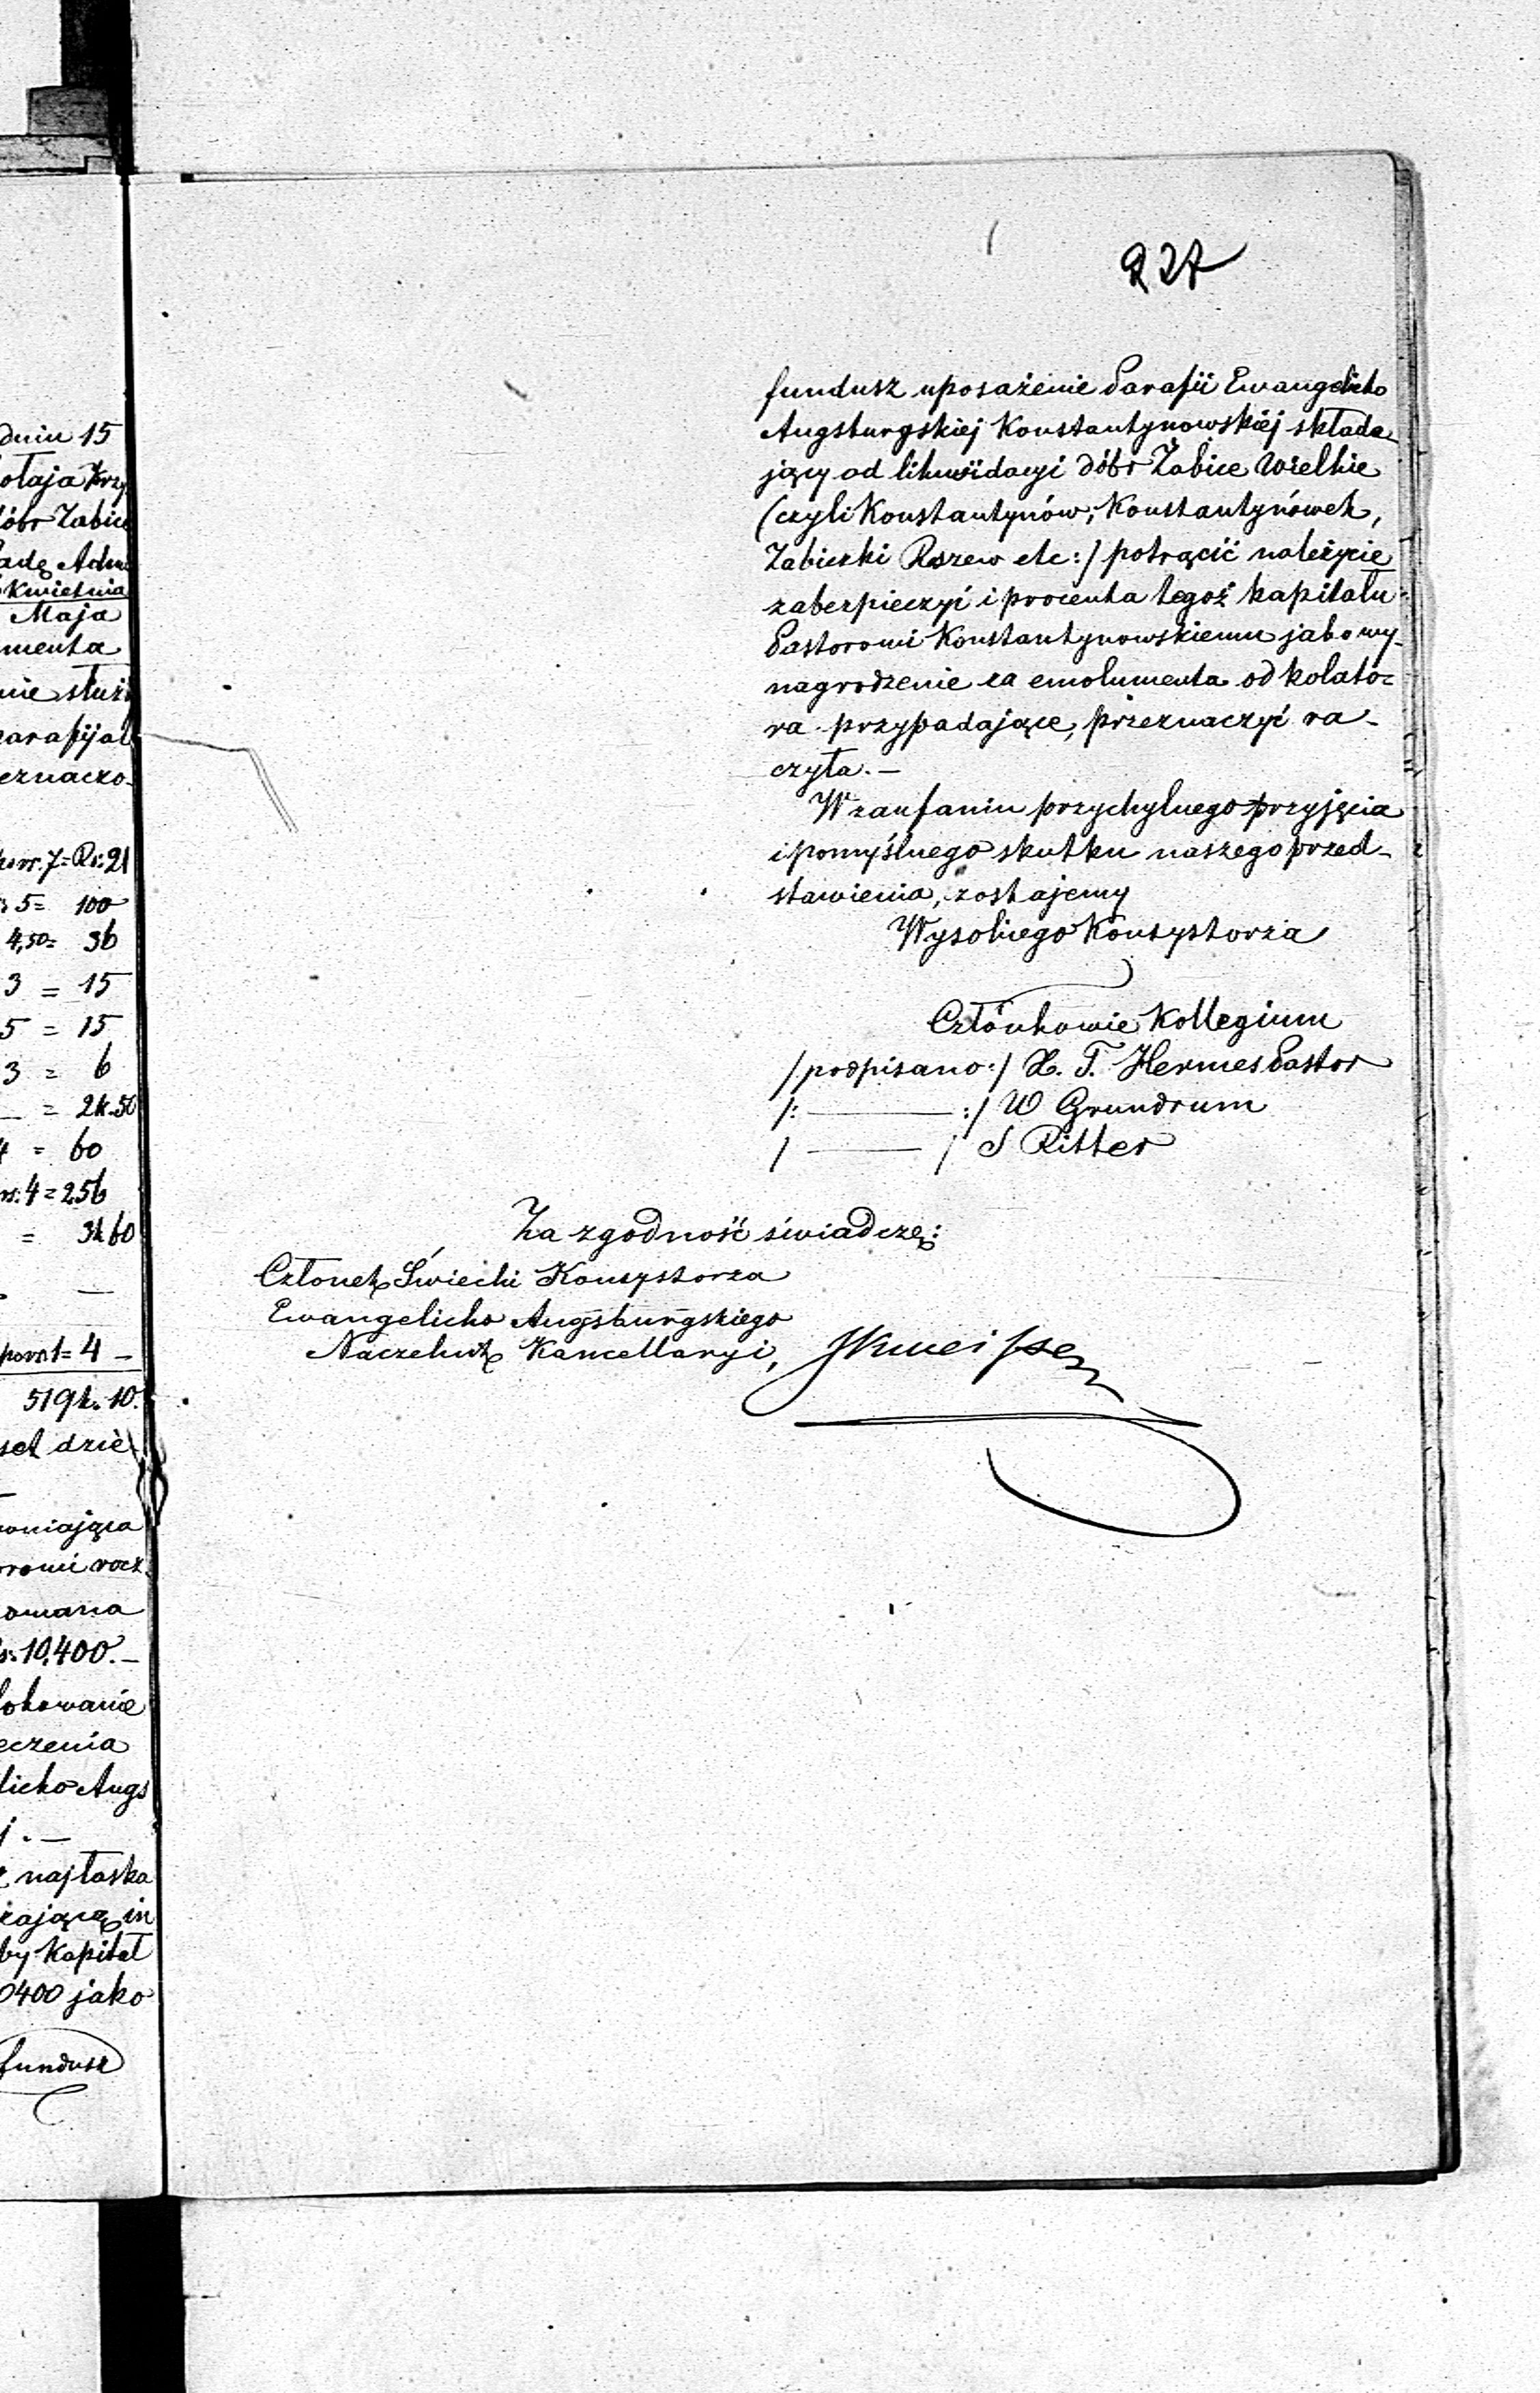 dniu 15
ołaja Krzy
óbr Żabice
adę Adm
Kwietnia
Maja
menta
nie służ
parafijal
eznaczo-
7 = Rs: 21
5 = 100
4,50 = 36
3 = 15
5 = 15
3 = 6
= 2k.50
4 = 60
4 = 256
= 3k 60
—
1 = 4 —
519 k. 10.
set dzie
oniająca
romi rocz
owana
s: 10,400.—
lokowanie
eczenia
licko Augs
j. —
najłaska
rającą in
by Kapitał
0400 jako
fundusz
227
fundusz uposażenie Parafii Ewangelicko
Augsburgskiej Konstantynowskiej składa-
jący od likwidacyi dóbr Żabice Wielkie
(czyli Konstantynów, Konstantynówek,
Żabiczki Rszew etc:/ potrącić należycie
zabezpieczyć i procenta tegoż kapitału
Pastorowi Konstantynowskiemu jako wy-
nagrodzenie za emolumenta od kolato=
ra przypadające, przeznaczyć ra-
czyła. —
W zaufaniu przychylnego przyjęcia
i pomyślnego skutku naszego przed-
stawienia, zostajemy
Wysokiego Konsystorza
Członkowie Kollegium
/podpisano:/ X. T. Hermes Pastor
/: ——— :/ W Grundrum
/ ——— / S Ritter
Za zgodność świadczę:
Członek Świecki Konsystorza
Ewangelicko Augsburgskiego
Naczelnik Kancellaryi,